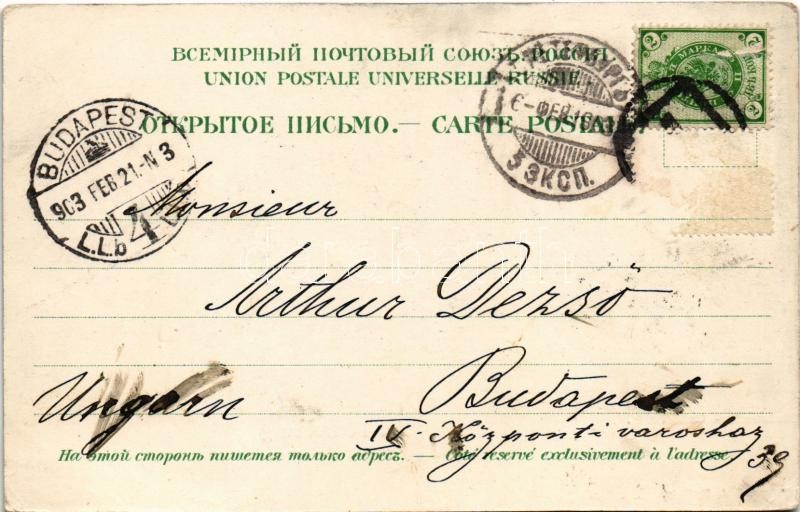 ВСЕМІРНЫЙ ПОЧТОВЫЙ СОЮЗЪ. РОССІЯ.
UNION POSTALE UNIVERSELLE RUSSIE.
ОТКРЫТОЕ ПИСЬМО. — CARTE POSTALE
2 МАРКА 2
BUDAPEST
903 FEB 21 · N 3
4
L.L.b
6 - ФЕВ
3 ЭКСП.
Monsieur
Arthur Dezső
Budapest
Ungarn
IV. Központi városház
39
На этой сторонѣ пишется только адресъ. — Côté réservé exclusivement à l'adresse.
darabanth